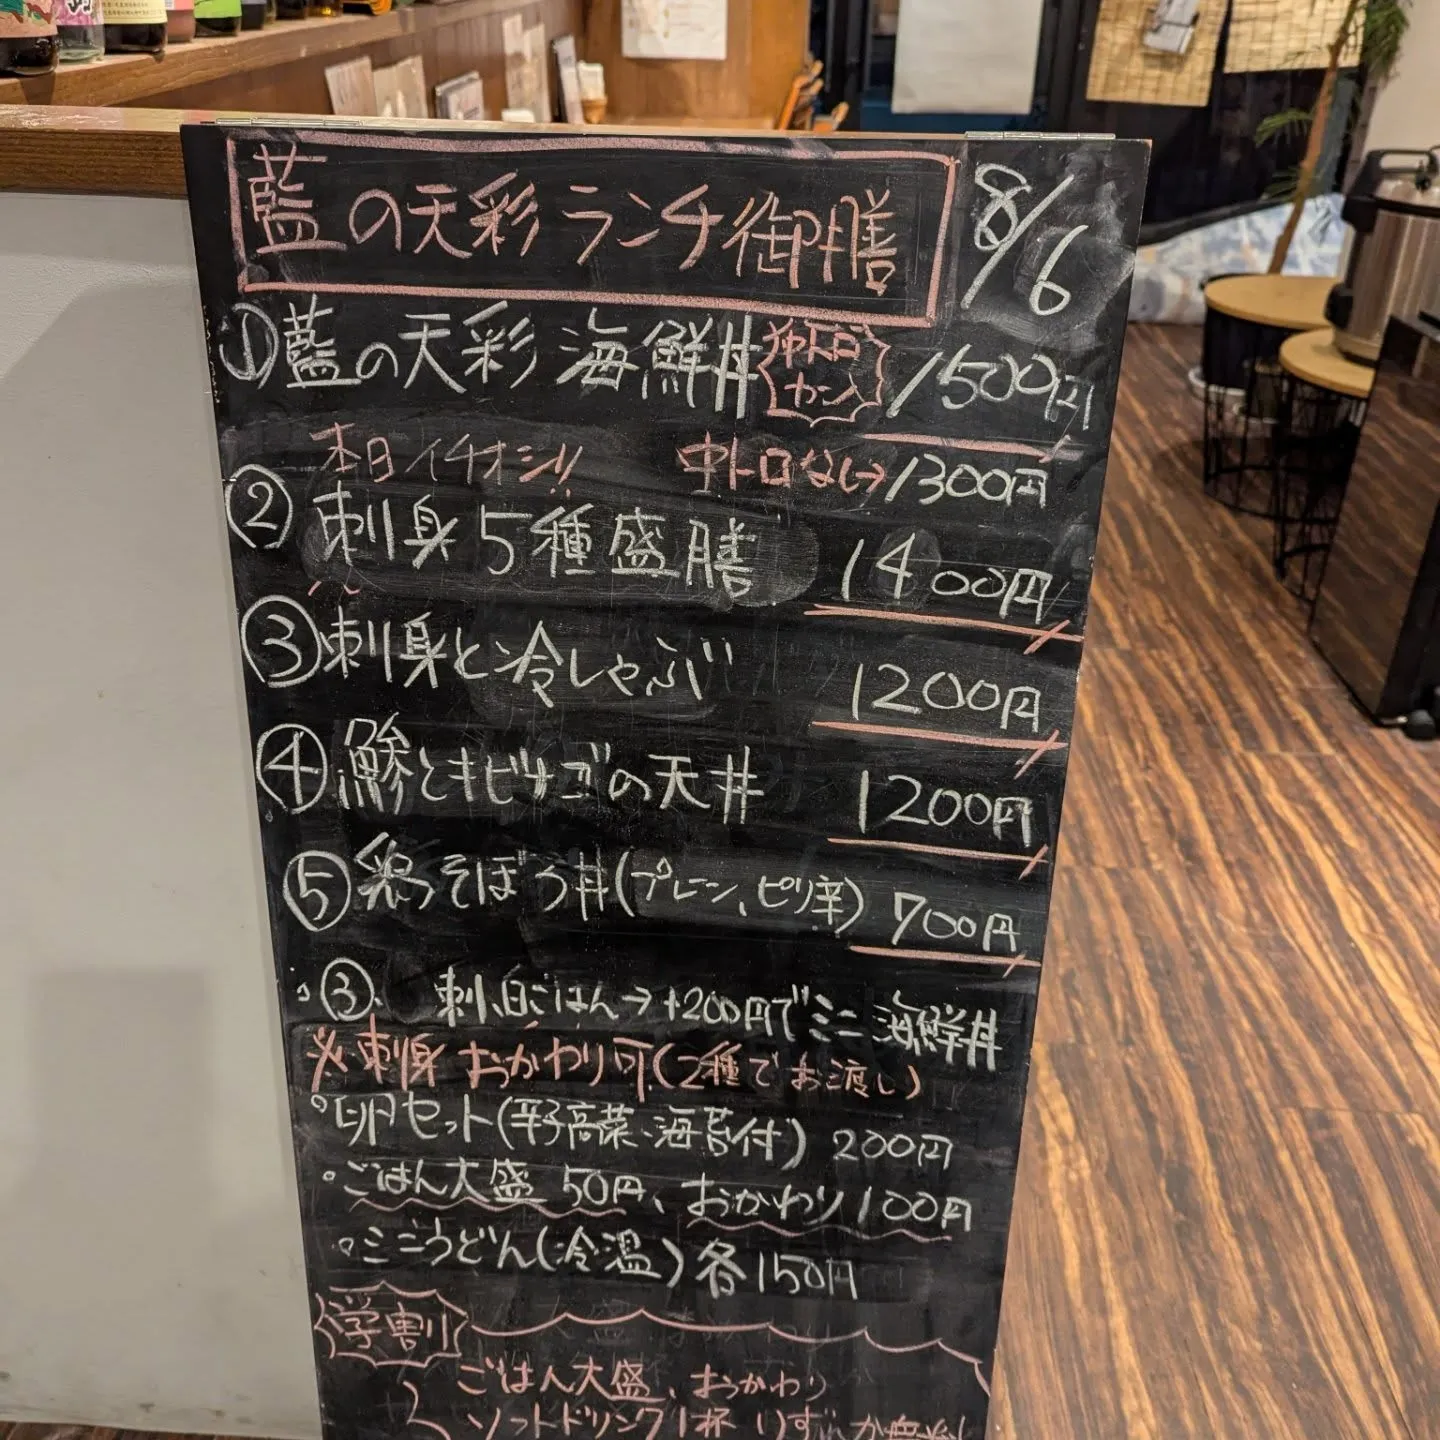 藍の天彩 ランチ御膳 8/6
①藍の天彩 海鮮丼 中トロ カン入 1500円
本日イチオシ!! 中トロなし→1300円
②刺身5種盛膳 1400円
③刺身と冷しゃぶ 1200円
④鯵とキビナゴの天丼 1200円
⑤鶏そぼろ丼(プレーン、ピリ辛) 700円
③、 刺、白ごはん→+200円でミニ海鮮丼
※刺身おかわり可(2種でお渡し)
°卵セット(辛子高菜、海苔付) 200円
°ごはん大盛 50円、おかわり100円
°ミニうどん(冷温)各150円
学割
ごはん大盛、おかわり
ソフトドリンク1杯